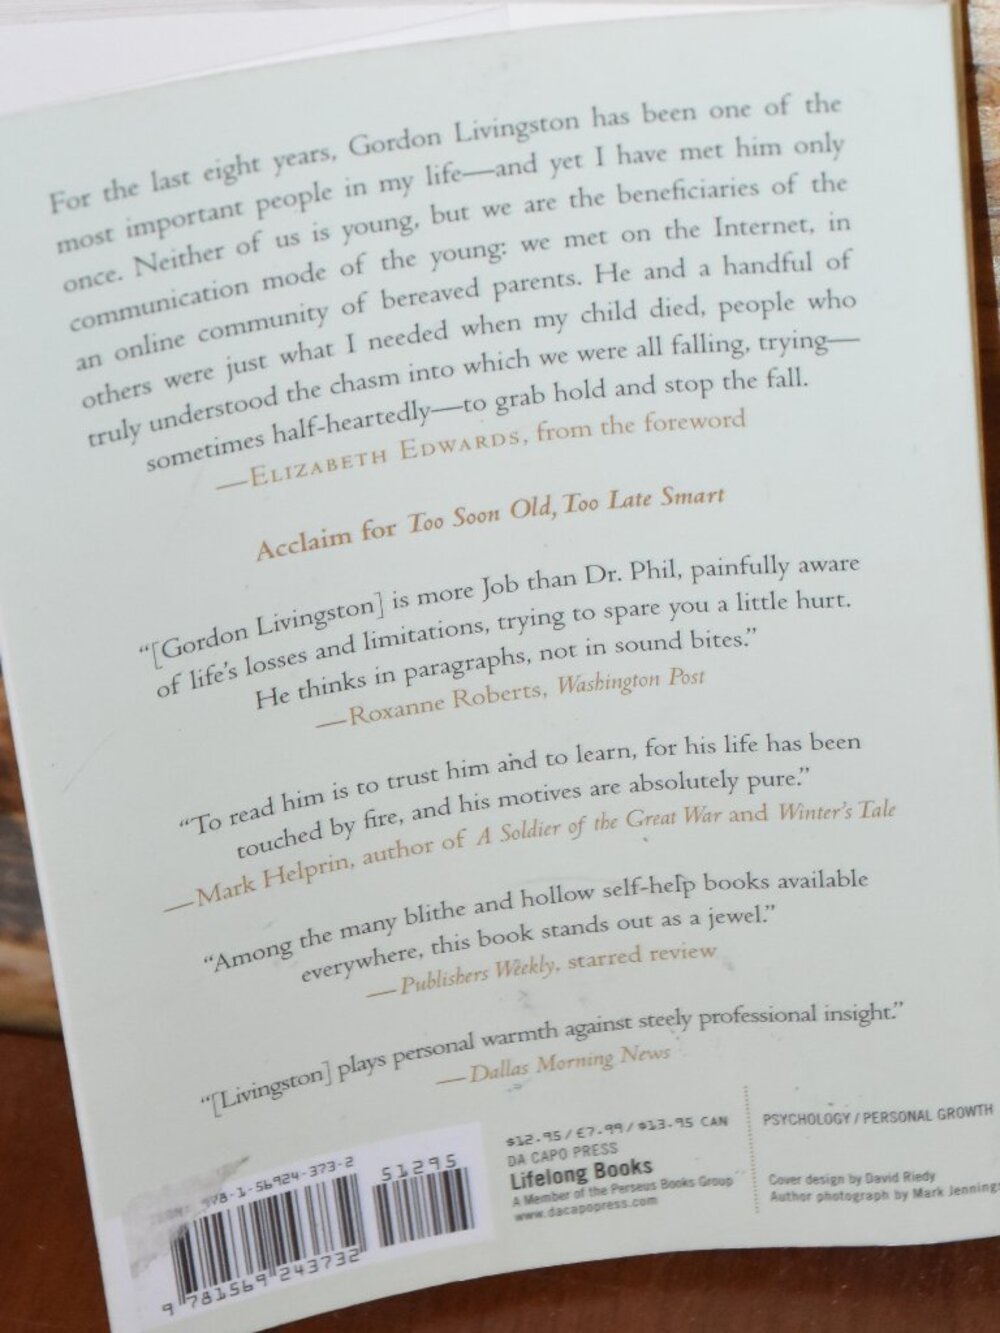 For the last eight years, Gordon Livingston has been one of the
most important people in my life—and yet I have met him only
once. Neither of us is young, but we are the beneficiaries of the
communication mode of the young: we met on the Internet, in
an online community of bereaved parents. He and a handful of
others were just what I needed when my child died, people who
truly understood the chasm into which we were all falling, trying—
sometimes half-heartedly—to grab hold and stop the fall.
—ELIZABETH EDWARDS, from the foreword
Acclaim for Too Soon Old, Too Late Smart
“[Gordon Livingston] is more Job than Dr. Phil, painfully aware
of life’s losses and limitations, trying to spare you a little hurt.
He thinks in paragraphs, not in sound bites.”
—Roxanne Roberts, Washington Post
“To read him is to trust him and to learn, for his life has been
touched by fire, and his motives are absolutely pure.”
—Mark Helprin, author of A Soldier of the Great War and Winter’s Tale
“Among the many blithe and hollow self-help books available
everywhere, this book stands out as a jewel.”
—Publishers Weekly, starred review
“[Livingston] plays personal warmth against steely professional insight.”
—Dallas Morning News
978-1-56924-373-2
51295
9 781569 243732
$12.95 / £7.99 / $13.95 CAN
DA CAPO PRESS
Lifelong Books
A Member of the Perseus Books Group
www.dacapopress.com
PSYCHOLOGY / PERSONAL GROWTH
Cover design by David Riedy
Author photograph by Mark Jennings